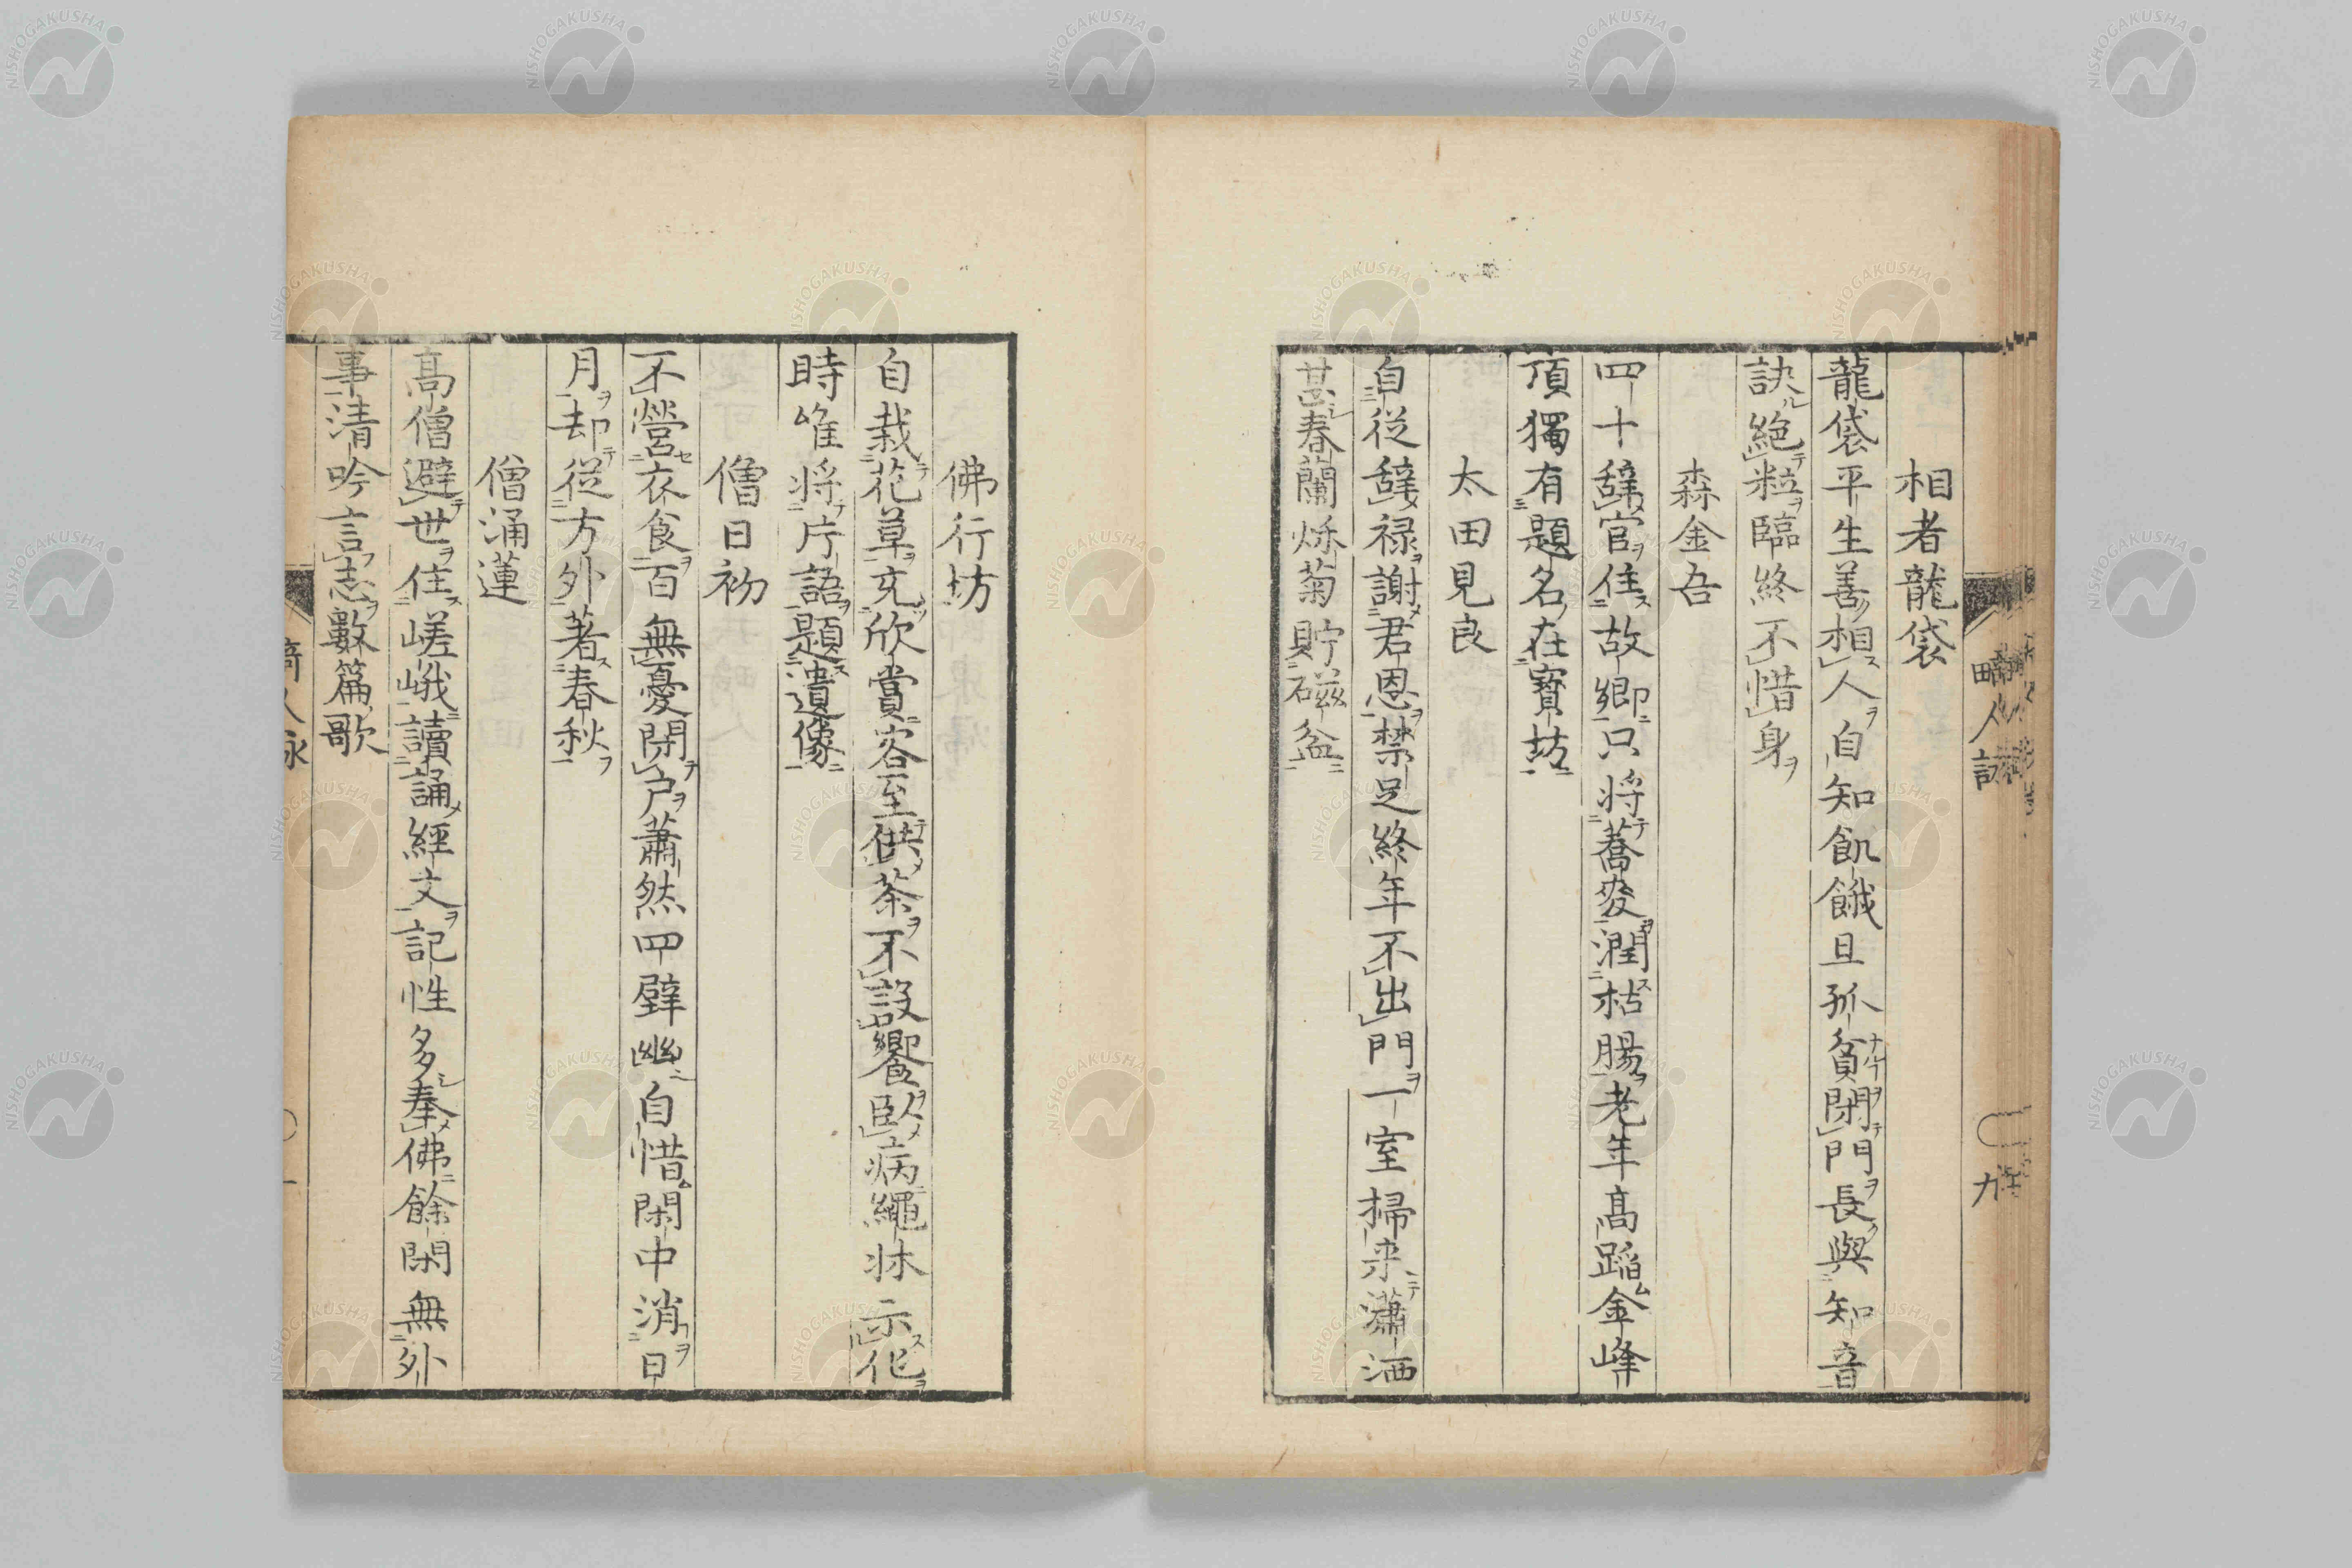 相者龍袋
龍袋平生善相人自知飢餓且孤貧閉門長與知音
訣絶粒臨終不惜身
森金吾
四十辭官住故鄉只將蕎麥潤枯腸老年高蹈金峰
頂獨有題名在寶坊
太田見良
自從辭禄謝君恩禁足終年不出門一室掃来瀟洒
甚春蘭秌菊貯磁盆
畸人詠
九
佛行坊
自栽花草充欣賞客至供茶不設饗臥病繩牀示化
時唯將片語題遺像
僧日初
不營衣食百無憂閉戸蕭然四壁幽自惜閑中消日
月却從方外著春秋
僧涌蓮
高僧避世住嵯峨讀誦經文記性多奉佛餘閑無外
事清吟言志數篇歌